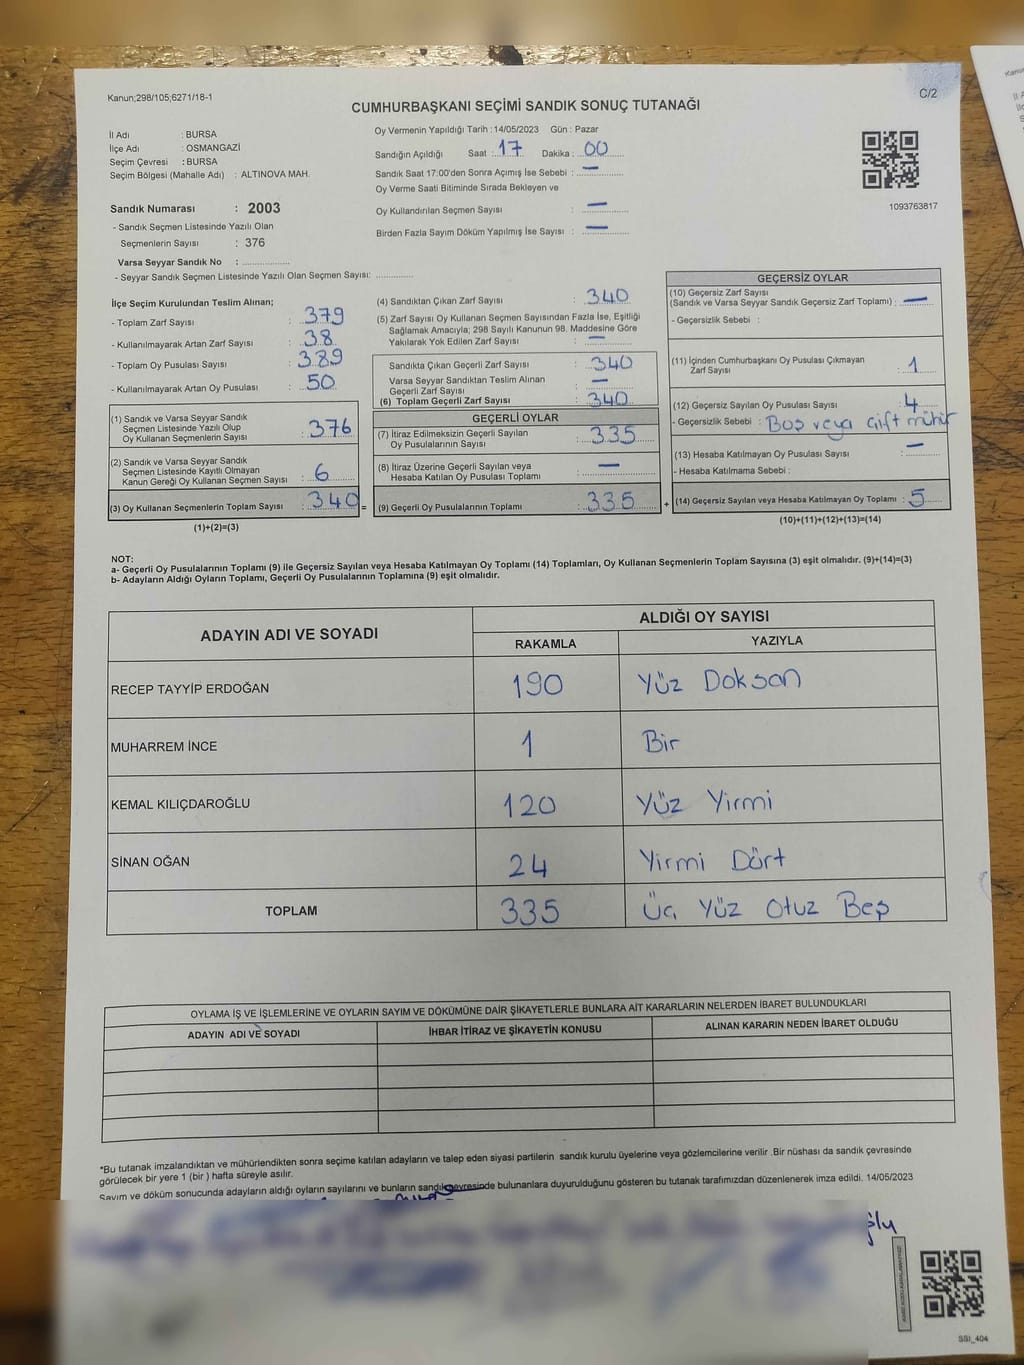 Kanun;298/105;6271/18-1
C/2
CUMHURBAŞKANI SEÇİMİ SANDIK SONUÇ TUTANAĞI
İl Adı : BURSA
İlçe Adı : OSMANGAZİ
Seçim Çevresi : BURSA
Seçim Bölgesi (Mahalle Adı) : ALTINOVA MAH.
Sandık Numarası : 2003
- Sandık Seçmen Listesinde Yazılı Olan
Seçmenlerin Sayısı : 376
Varsa Seyyar Sandık No :
- Seyyar Sandık Seçmen Listesinde Yazılı Olan Seçmen Sayısı:
Oy Vermenin Yapıldığı Tarih : 14/05/2023 Gün : Pazar
Sandığın Açıldığı Saat : 17 Dakika : 00
Sandık Saat 17:00'den Sonra Açımış İse Sebebi : —
Oy Verme Saati Bitiminde Sırada Bekleyen ve
Oy Kullandırılan Seçmen Sayısı : —
Birden Fazla Sayım Döküm Yapılmış İse Sayısı : —
1093763817
İlçe Seçim Kurulundan Teslim Alınan;
- Toplam Zarf Sayısı : 379
- Kullanılmayarak Artan Zarf Sayısı : 38
- Toplam Oy Pusulası Sayısı : 389
- Kullanılmayarak Artan Oy Pusulası : 50
(1) Sandık ve Varsa Seyyar Sandık
Seçmen Listesinde Yazılı Olup
Oy Kullanan Seçmenlerin Sayısı : 376
(2) Sandık ve Varsa Seyyar Sandık
Seçmen Listesinde Kayıtlı Olmayan
Kanun Gereği Oy Kullanan Seçmen Sayısı : 6
(3) Oy Kullanan Seçmenlerin Toplam Sayısı : 340 =
(1)+(2)=(3)
(4) Sandıktan Çıkan Zarf Sayısı : 340
(5) Zarf Sayısı Oy Kullanan Seçmen Sayısından Fazla İse, Eşitliği
Sağlamak Amacıyla; 298 Sayılı Kanunun 98. Maddesine Göre
Yakılarak Yok Edilen Zarf Sayısı : —
Sandıkta Çıkan Geçerli Zarf Sayısı : 340
Varsa Seyyar Sandıktan Teslim Alınan
Geçerli Zarf Sayısı : —
(6) Toplam Geçerli Zarf Sayısı : 340
GEÇERLİ OYLAR
(7) İtiraz Edilmeksizin Geçerli Sayılan
Oy Pusulalarının Sayısı : 335
(8) İtiraz Üzerine Geçerli Sayılan veya
Hesaba Katılan Oy Pusulası Toplamı : —
(9) Geçerli Oy Pusulalarının Toplamı : 335 +
GEÇERSİZ OYLAR
(10) Geçersiz Zarf Sayısı
(Sandık ve Varsa Seyyar Sandık Geçersiz Zarf Toplamı) : —
- Geçersizlik Sebebi :
(11) İçinden Cumhurbaşkanı Oy Pusulası Çıkmayan
Zarf Sayısı : 1
(12) Geçersiz Sayılan Oy Pusulası Sayısı : 4
- Geçersizlik Sebebi : Boş veya çift mühür
(13) Hesaba Katılmayan Oy Pusulası Sayısı : —
- Hesaba Katılmama Sebebi :
(14) Geçersiz Sayılan veya Hesaba Katılmayan Oy Toplamı : 5
(10)+(11)+(12)+(13)=(14)
NOT:
a- Geçerli Oy Pusulalarının Toplamı (9) ile Geçersiz Sayılan veya Hesaba Katılmayan Oy Toplamı (14) Toplamları, Oy Kullanan Seçmenlerin Toplam Sayısına (3) eşit olmalıdır. (9)+(14)=(3)
b- Adayların Aldığı Oyların Toplamı, Geçerli Oy Pusulalarının Toplamına (9) eşit olmalıdır.
ADAYIN ADI VE SOYADI
ALDIĞI OY SAYISI
RAKAMLA YAZIYLA
RECEP TAYYİP ERDOĞAN 190 Yüz Doksan
MUHARREM İNCE 1 Bir
KEMAL KILIÇDAROĞLU 120 Yüz Yirmi
SİNAN OĞAN 24 Yirmi Dört
TOPLAM 335 Üç Yüz Otuz Beş
OYLAMA İŞ VE İŞLEMLERİNE VE OYLARIN SAYIM VE DÖKÜMÜNE DAİR ŞİKAYETLERLE BUNLARA AİT KARARLARIN NELERDEN İBARET BULUNDUKLARI
ADAYIN ADI VE SOYADI İHBAR İTİRAZ VE ŞİKAYETİN KONUSU ALINAN KARARIN NEDEN İBARET OLDUĞU
*Bu tutanak imzalandıktan ve mühürlendikten sonra seçime katılan adayların ve talep eden siyasi partilerin sandık kurulu üyelerine veya gözlemcilerine verilir .Bir nüshası da sandık çevresinde
görülecek bir yere 1 (bir ) hafta süreyle asılır.
Sayım ve döküm sonucunda adayların aldığı oyların sayılarını ve bunların sandık çevresinde bulunanlara duyurulduğunu gösteren bu tutanak tarafımızdan düzenlenerek imza edildi. 14/05/2023
SSI_404